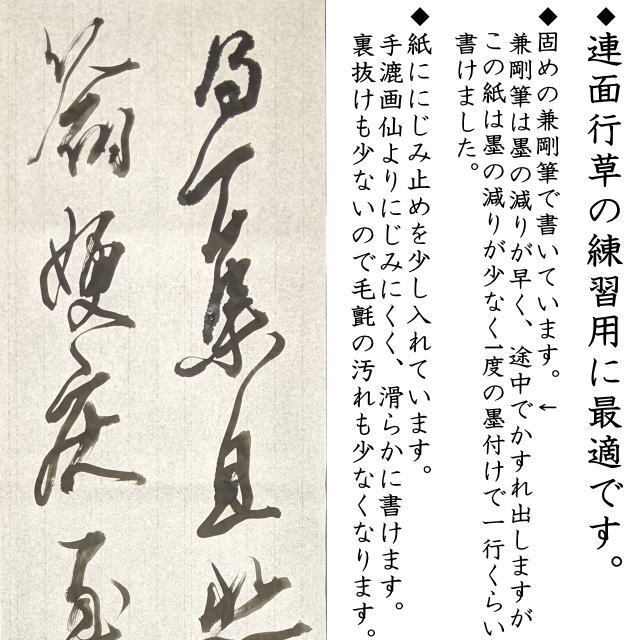 ◆連面行草の練習用に最適です。
◆固めの兼剛筆で書いています。←
兼剛筆は墨の減りが早く、途中でかすれ出しますが
この紙は墨の減りが少なく一度の墨付けで一行くらい
書けました。
◆紙ににじみ止めを少し入れています。
手漉画仙よりにじみにくく、滑らかに書けます。
裏抜けも少ないので毛氈の汚れも少なくなります。